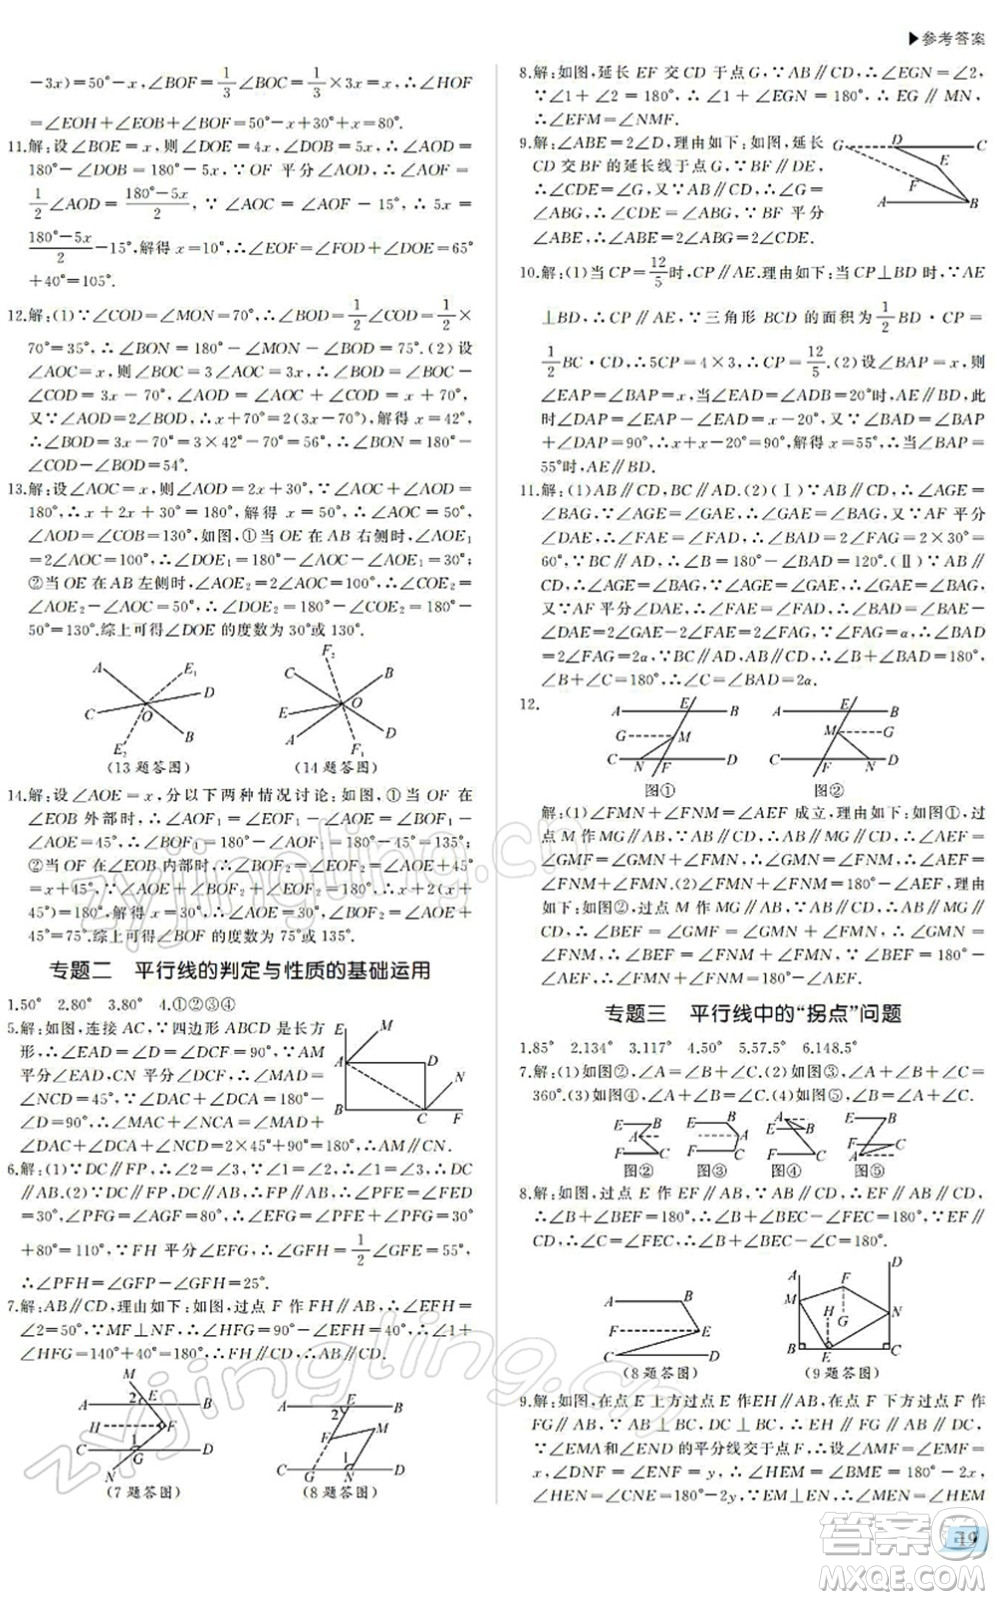 ▶参考答案
-3x)=50°-x,∠BOF=1/3∠BOC=1/3×3x=x,∴∠HOF
=∠EOH+∠EOB+∠BOF=50°-x+30°+x=80°.
11.解:设∠BOE=x,则∠DOE=4x,∠DOB=5x,∴∠AOD=
180°-∠DOB=180°-5x,∵OF平分∠AOD,∴∠AOF=
1/2∠AOD=(180°-5x)/2,∵∠AOC=∠AOF-15°,∴5x=
(180°-5x)/2-15°,解得x=10°,∴∠EOF=∠FOD+∠DOE=65°
+40°=105°.
12.解:(1)∵∠COD=∠MON=70°,∴∠BOD=1/2∠COD=1/2×
70°=35°,∴∠BON=180°-∠MON-∠BOD=75°.(2)设
∠AOC=x,则∠BOC=3∠AOC=3x,∴∠BOD=∠BOC-
∠COD=3x-70°,∠AOD=∠AOC+∠COD=x+70°,
又∵∠AOD=2∠BOD,∴x+70°=2(3x-70°),解得x=42°,
∴∠BOD=3x-70°=3×42°-70°=56°,∴∠BON=180°-
∠COD-∠BOD=54°.
13.解:设∠AOC=x,则∠AOD=2x+30°,∵∠AOC+∠AOD=
180°,∴x+2x+30°=180°,解得x=50°,∴∠AOC=50°,
∠AOD=∠COB=130°,如图,①当OE在AB右侧时,∠AOE₁
=2∠AOC=100°,∴∠DOE₁=180°-∠AOC-∠AOE₁=30°;
②当OE在AB左侧时,∠AOE₂=2∠AOC=100°,∴∠COE₂=
∠AOE₂-∠AOC=50°,∴∠DOE₂=180°-∠COE₂=180°-
50°=130°.综上可得∠DOE的度数为30°或130°.
A E₁ D C O B E₂
(13题答图)
F₂ C B E O D A F₁
(14题答图)
14.解:设∠AOE=x,分以下两种情况讨论:如图,①当OF在
∠EOB外部时,∵∠AOE+∠BOF₁=180°,∠BOF₁-∠AOE=45°,
②当OF在∠EOB内部时,∴∠BOF₂=∠AOE+45°
=x+45°;∵∠AOE+∠BOF₂+∠EOF₂=180°,∴x+2(x+
45°)=180°,解得x=30°,∴∠AOE=30°,∠BOF₂=∠AOE+
45°=75°.综上可得∠BOF的度数为75°或135°.
专题二 平行线的判定与性质的基础运用
1.50° 2.80° 3.80° 4.①②③④
5.解:如图,连接AC,∵四边形ABCD是长方
形,∴∠EAD=∠D=∠DCF=90°,∵AM
平分∠EAD,CN平分∠DCF,∴∠MAD=
∠NCD=45°,∵∠DAC+∠DCA=180°-
∠D=90°,∴∠MAC+∠NCA=∠MAD+
∠DAC+∠DCA+∠NCD=2×45°+90°=180°,∴AM∥CN.
E M A D N B C F
6.解:(1)∵DC∥FP,∴∠2=∠3,∵∠1=∠2,∴∠3=∠1,∴DC
∥AB.(2)∵DC∥FP,DC∥AB,∴FP∥AB,∴∠PFE=∠FED
=30°,∠PFG=∠AGF=80°,∴∠EFG=∠PFE+∠PFG=30°
+80°=110°,∵FH平分∠EFG,∴∠GFH=1/2∠GFE=55°,
∴∠PFH=∠GFP-∠GFH=25°.
7.解:AB∥CD,理由如下:如图,过点F作FH∥AB,∴∠EFH=
∠2=50°,∵MF⊥NF,∴∠HFG=90°-∠EFH=40°,∴∠1
+∠HFG=140°+40°=180°,∴HF∥CD,∴AB∥CD.
M A 2 E B H F C 1 G D N
(7题答图)
A E B 2 F M G C 1 N D
(8题答图)
8.解:如图,延长EF交CD于点G,∵AB∥CD,∴∠EGN=∠2,
∵∠1+∠2=180°,∴∠1+∠EGN=180°,∴EG∥MN,
∴∠EFM=∠NMF.
9.解:∠ABE=2∠D,理由如下:如图,延长
CD交BF的延长线于点G,∵BF∥DE,
∴∠CDE=∠G,又∵AB∥CD,∴∠G=
∠ABG,∴∠CDE=∠ABG,∵BF平分
∠ABE,∴∠ABE=2∠ABG=2∠CDE.
G D C E F A B
10.解:(1)当CP=12/5时,CP∥AE.理由如下:当CP⊥BD时,∵AE
⊥BD,∴CP∥AE,∵三角形BCD的面积为1/2BD·CP=
1/2BC·CD,∴5CP=4×3,∴CP=12/5.(2)设∠BAP=x,则
∠EAP=∠BAP=x,当∠EAD=∠ADB=20°时,AE∥BD,此
时∠DAP=∠EAP-∠EAD=x-20°,又∵∠BAD=∠BAP
+∠DAP=90°,∴x+x-20°=90°,解得x=55°,∴当∠BAP=
55°时,AE∥BD.
11.解:(1)AB∥CD,BC∥AD.(2)(Ⅰ)∵AB∥CD,∴∠AGE=
∠BAG,∵∠AGE=∠GAE,∴∠GAE=∠BAG,又∵AF平分
∠DAE,∴∠FAE=∠FAD,∴∠BAD=2∠FAG=2×30°=
60°,∵BC∥AD,∴∠B=180°-∠BAD=120°.(Ⅱ)∵AB∥
CD,∴∠AGE=∠BAG,∵∠AGE=∠GAE,∴∠GAE=∠BAG,
又∵AF平分∠DAE,∴∠FAE=∠FAD,∴∠BAD=∠BAE-
∠DAE=2∠GAE-2∠FAE=2∠FAG,∵∠FAG=α,∴∠BAD
=2∠FAG=2α,∵BC∥AD,AB∥CD,∴∠B+∠BAD=180°,
∠B+∠C=180°,∴∠C=∠BAD=2α.
12.
A E B G M C N F D
图①
A E B M G C F N D
图②
解:(1)∠FMN+∠FNM=∠AEF成立,理由如下:如图①,过
点M作MG∥AB,∵AB∥CD,∴MG∥AB∥CD,∴∠AEF=
∠GMF=∠GMN+∠FMN,∠GMN=∠FNM,∴∠AEF=
∠FNM+∠FMN.(2)∠FMN+∠FNM=180°-∠AEF,理由
如下:如图②,过点M作MG∥AB,∵AB∥CD,∴MG∥AB∥
CD,∴∠GMN=∠FNM,∠AEF+∠EMG=180°,∴∠FMN+
∠FNM=∠FMN+∠GMN=180°-∠EMG=180°-∠AEF.
专题三 平行线中的“拐点”问题
1.85° 2.134° 3.117° 4.50° 5.57.5° 6.148.5°
7.解:(1)如图②,∠A=∠B+∠C.(2)如图③,∠A+∠B+∠C=
360°.(3)如图④,∠A+∠B=∠C.(4)如图⑤,∠A+∠B=∠C.
E B A F C
图②
E B A F C
图③
A E B F C
图④
E B F C A
图⑤
8.解:如图,过点E作EF∥AB,∵AB∥CD,∴EF∥AB∥CD,
∴∠B+∠BEF=180°,∴∠BEF-∠FEC=180°,∵EF∥
CD,∴∠C=∠FEC,∴∠B+∠BEC-∠C=180°.
A B F E C D
(8题答图)
A D M F N H G B E C
(9题答图)
9.解:如图,在点E上方过点E作EH∥AB,在点F下方过点F作
FG∥AB,∵AB∥CD,∴AB∥EH∥FG∥CD,∵∠AME
和∠END的平分线交于点F,∴设∠AMF=∠EMF=
x,∠DNF=∠ENF=y,∴∠MEH=∠BME=180°-2x,
∠HEN=∠CNE=180°-2y,∵EM⊥EN,∴∠MEH+∠HEN
zyjingling.cn
答案圈
MXQE.COM
19